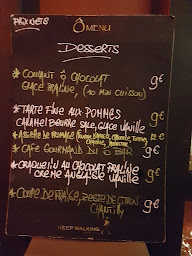 PRIX NETS
Ô MENU
DESSERTS
* COULANT Ô CHOCOLAT
GLACE PRALINE, (10 MIN CUISSON) 9€
* TARTE FINE AUX POMMES
CARAMEL BEURRE SALE, GLACE VANILLE 9€
* ASSIETTE DE FROMAGE 12 €
* CAFE GOURMAND DU Ô BAR 9€
* CRAQUELIN AU CHOCOLAT PRALINE
CREME ANGLAISE VANILLE 9€
* COUPE DE FRAISE, ZESTE DE CITRON
CHANTILLY 9€
KEEP WALKING